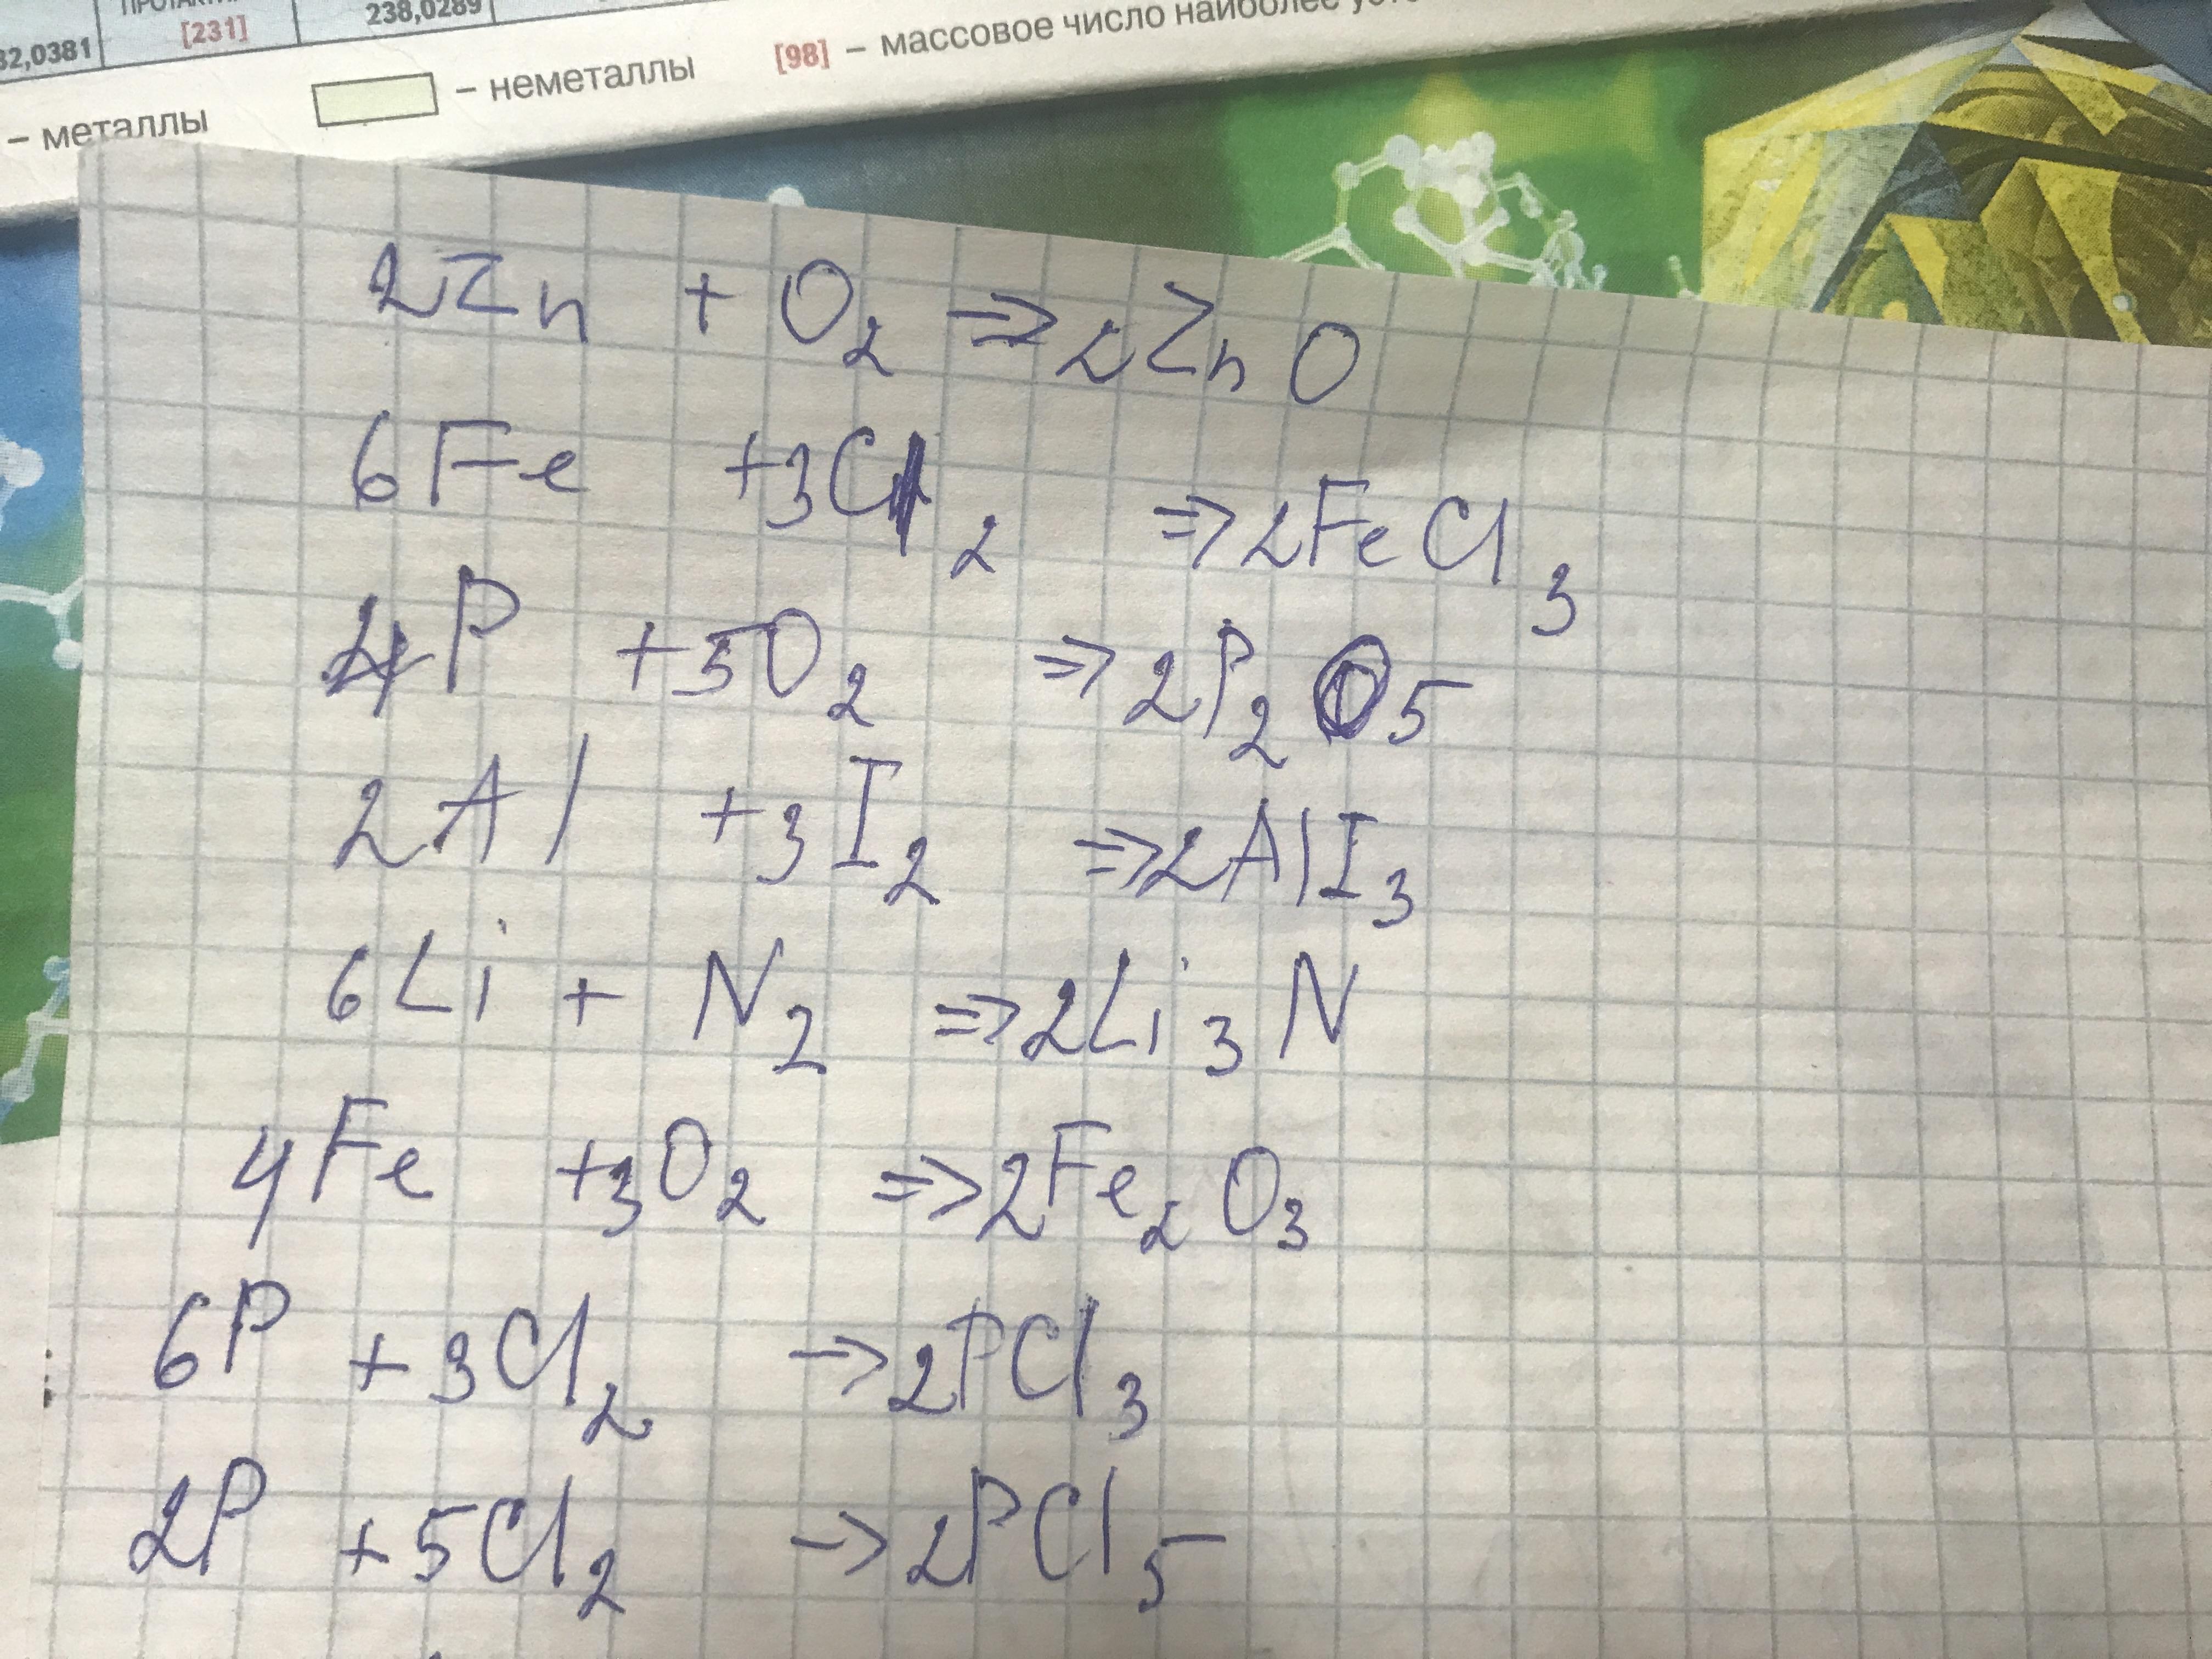 [231]
238,0289
32,0381
– металлы
– неметаллы
[98] – массовое число наиболее
2Zn + O₂ ⇒ 2ZnO
6Fe +3Cl₂ ⇒ 2FeCl₃
4P +5O₂ ⇒ 2P₂O₅
2Al +3I₂ ⇒ 2AlI₃
6Li + N₂ ⇒ 2Li₃N
4Fe +3O₂ ⇒ 2Fe₂O₃
6P +3Cl₂ → 2PCl₃
2P +5Cl₂ → 2PCl₅